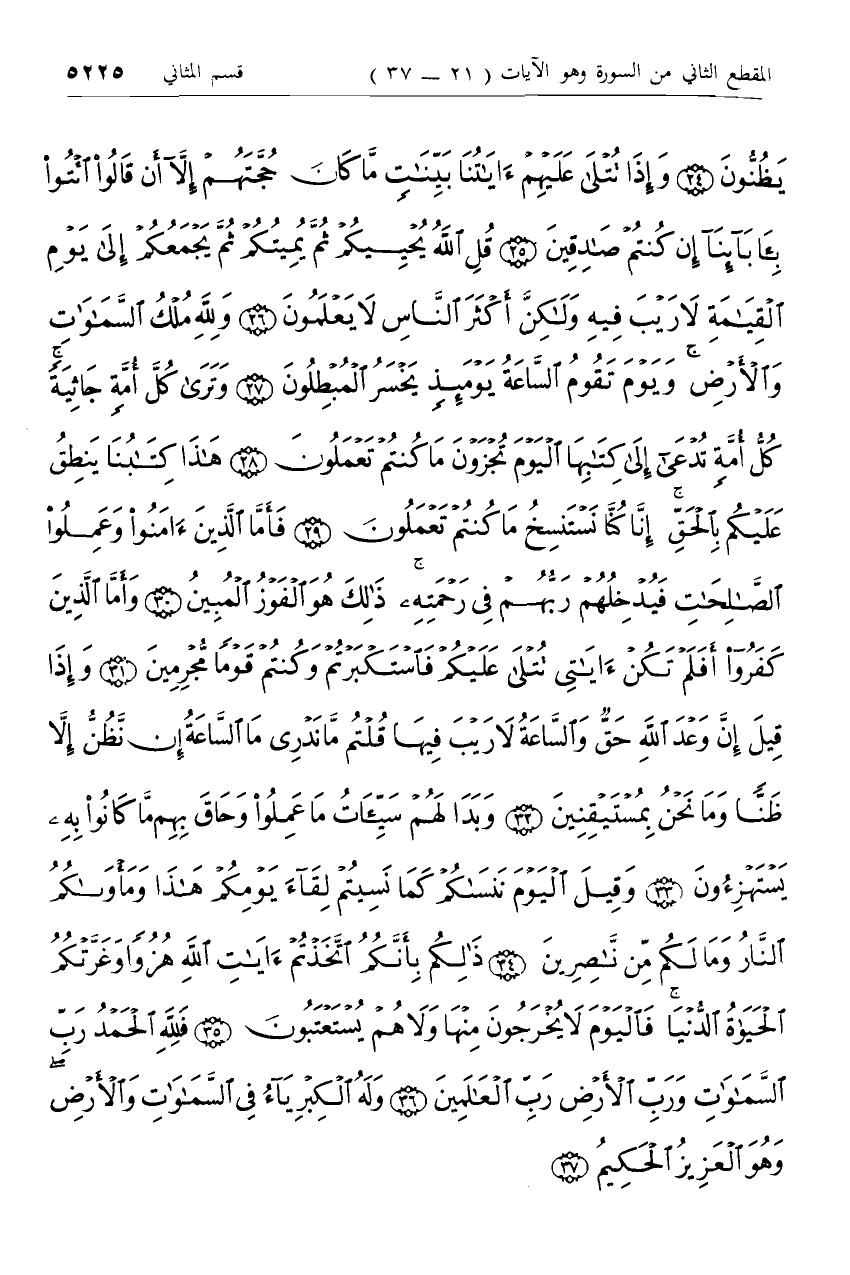 المقطع الثاني من السورة وهو الآيات ( ٢١ ــ ٣٧ ) قسم المثاني ٥٢٢٥
يَظُنُّونَ ﴿٢٤﴾ وَإِذَا تُتْلَىٰ عَلَيْهِمْ ءَايَـٰتُنَا بَيِّنَـٰتٍ مَّا كَانَ حُجَّتَهُمْ إِلَّآ أَن قَالُوا۟ ٱئْتُوا۟
بِـَٔابَآئِنَآ إِن كُنتُمْ صَـٰدِقِينَ ﴿٢٥﴾ قُلِ ٱللَّهُ يُحْيِيكُمْ ثُمَّ يُمِيتُكُمْ ثُمَّ يَجْمَعُكُمْ إِلَىٰ يَوْمِ
ٱلْقِيَـٰمَةِ لَا رَيْبَ فِيهِ وَلَـٰكِنَّ أَكْثَرَ ٱلنَّاسِ لَا يَعْلَمُونَ ﴿٢٦﴾ وَلِلَّهِ مُلْكُ ٱلسَّمَـٰوَٰتِ
وَٱلْأَرْضِ ۚ وَيَوْمَ تَقُومُ ٱلسَّاعَةُ يَوْمَئِذٍ يَخْسَرُ ٱلْمُبْطِلُونَ ﴿٢٧﴾ وَتَرَىٰ كُلَّ أُمَّةٍ جَاثِيَةً ۚ
كُلُّ أُمَّةٍ تُدْعَىٰٓ إِلَىٰ كِتَـٰبِهَا ٱلْيَوْمَ تُجْزَوْنَ مَا كُنتُمْ تَعْمَلُونَ ﴿٢٨﴾ هَـٰذَا كِتَـٰبُنَا يَنطِقُ
عَلَيْكُم بِٱلْحَقِّ ۚ إِنَّا كُنَّا نَسْتَنسِخُ مَا كُنتُمْ تَعْمَلُونَ ﴿٢٩﴾ فَأَمَّا ٱلَّذِينَ ءَامَنُوا۟ وَعَمِلُوا۟
ٱلصَّـٰلِحَـٰتِ فَيُدْخِلُهُمْ رَبُّهُمْ فِى رَحْمَتِهِۦ ۚ ذَٰلِكَ هُوَ ٱلْفَوْزُ ٱلْمُبِينُ ﴿٣٠﴾ وَأَمَّا ٱلَّذِينَ
كَفَرُوٓا۟ أَفَلَمْ تَكُنْ ءَايَـٰتِى تُتْلَىٰ عَلَيْكُمْ فَٱسْتَكْبَرْتُمْ وَكُنتُمْ قَوْمًا مُّجْرِمِينَ ﴿٣١﴾ وَإِذَا
قِيلَ إِنَّ وَعْدَ ٱللَّهِ حَقٌّ وَٱلسَّاعَةُ لَا رَيْبَ فِيهَا قُلْتُم مَّا نَدْرِى مَا ٱلسَّاعَةُ إِن نَّظُنُّ إِلَّا
ظَنًّا وَمَا نَحْنُ بِمُسْتَيْقِنِينَ ﴿٣٢﴾ وَبَدَا لَهُمْ سَيِّـَٔاتُ مَا عَمِلُوا۟ وَحَاقَ بِهِم مَّا كَانُوا۟ بِهِۦ
يَسْتَهْزِءُونَ ﴿٣٣﴾ وَقِيلَ ٱلْيَوْمَ نَنسَىٰكُمْ كَمَا نَسِيتُمْ لِقَآءَ يَوْمِكُمْ هَـٰذَا وَمَأْوَىٰكُمُ
ٱلنَّارُ وَمَا لَكُم مِّن نَّـٰصِرِينَ ﴿٣٤﴾ ذَٰلِكُم بِأَنَّكُمُ ٱتَّخَذْتُمْ ءَايَـٰتِ ٱللَّهِ هُزُوًا وَغَرَّتْكُمُ
ٱلْحَيَوٰةُ ٱلدُّنْيَا ۚ فَٱلْيَوْمَ لَا يُخْرَجُونَ مِنْهَا وَلَا هُمْ يُسْتَعْتَبُونَ ﴿٣٥﴾ فَلِلَّهِ ٱلْحَمْدُ رَبِّ
ٱلسَّمَـٰوَٰتِ وَرَبِّ ٱلْأَرْضِ رَبِّ ٱلْعَـٰلَمِينَ ﴿٣٦﴾ وَلَهُ ٱلْكِبْرِيَآءُ فِى ٱلسَّمَـٰوَٰتِ وَٱلْأَرْضِ ۖ
وَهُوَ ٱلْعَزِيزُ ٱلْحَكِيمُ ﴿٣٧﴾